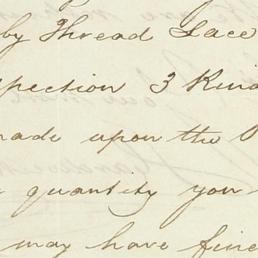 by Thread Lace
spection 3 Kin
made upon the
quantity you
may have fine